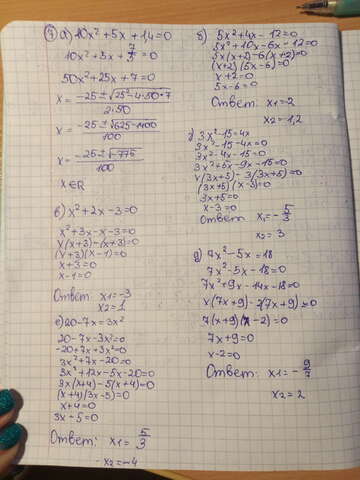 7) а) 10x² + 5x + 1,4 = 0
10x² + 5x + 7/5 = 0
50x² + 25x + 7 = 0
x = (-25 ± √(25² - 4·50·7)) / (2·50)
x = (-25 ± √(625 - 1400)) / 100
x = (-25 ± √(-775)) / 100
x ∈ R
в) x² + 2x - 3 = 0
x² + 3x - x - 3 = 0
x(x+3) - (x+3) = 0
(x+3)(x-1) = 0
x + 3 = 0
x - 1 = 0
Ответ: x1 = -3
x2 = 1
е) 20 - 7x = 3x²
20 - 7x - 3x² = 0
-20 + 7x + 3x² = 0
3x² + 7x - 20 = 0
3x² + 12x - 5x - 20 = 0
3x(x+4) - 5(x+4) = 0
(x+4)(3x-5) = 0
x + 4 = 0
3x - 5 = 0
Ответ: x1 = 5/3
x2 = -4
б) 5x² + 4x - 12 = 0
5x² + 10x - 6x - 12 = 0
5x(x+2) - 6(x+2) = 0
(x+2)(5x-6) = 0
x + 2 = 0
5x - 6 = 0
Ответ: x1 = -2
x2 = 1,2
3x² - 15 = 4x
3x² - 15 - 4x = 0
3x² - 4x - 15 = 0
3x² + 5x - 9x - 15 = 0
x(3x+5) - 3(3x+5) = 0
(3x+5)(x-3) = 0
3x + 5 = 0
x - 3 = 0
Ответ x1 = - 5/3
x2 = 3
д) 7x² - 5x = 18
7x² - 5x - 18 = 0
7x² + 9x - 14x - 18 = 0
x(7x+9) - 2(7x+9) = 0
7(x+9)(x-2) = 0
7x + 9 = 0
x - 2 = 0
Ответ: x1 = - 9/7
x2 = 2